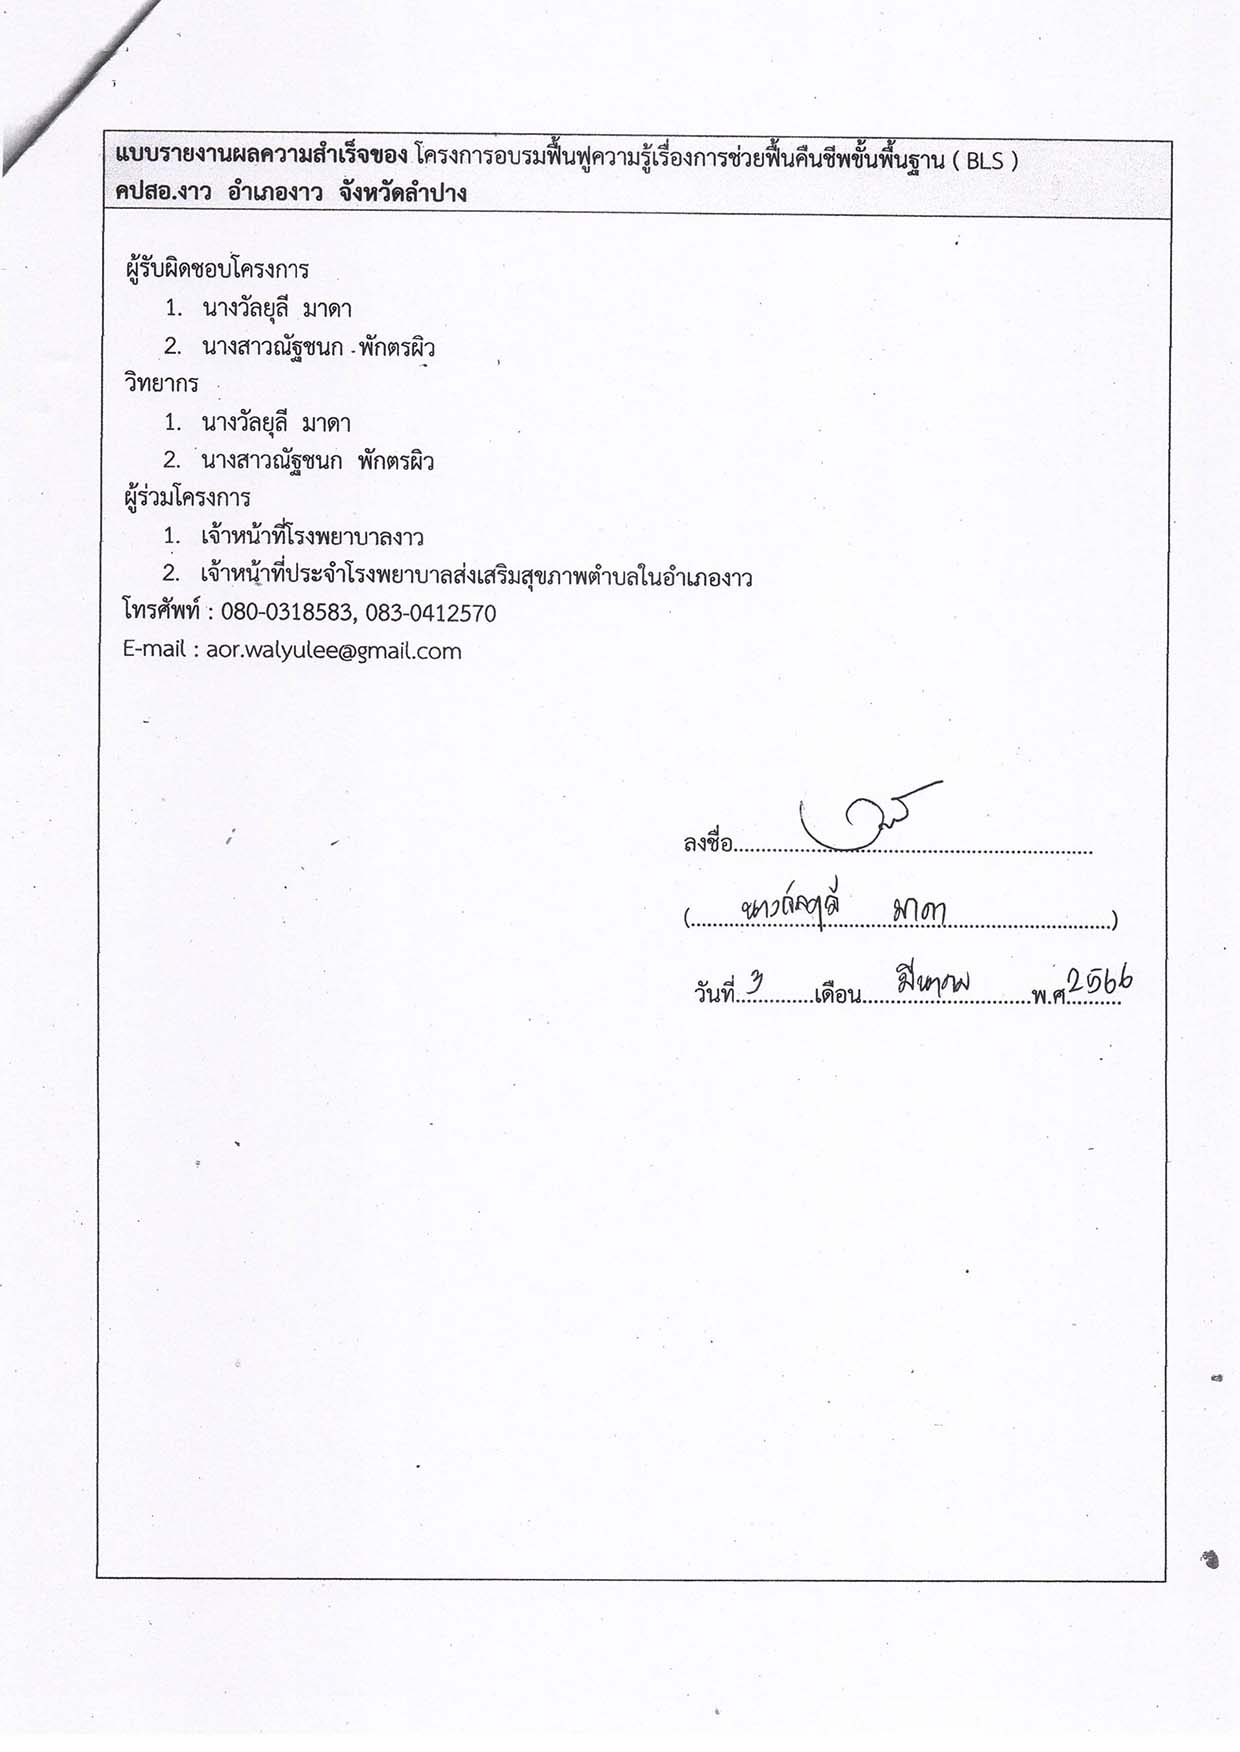 แบบรายงานผลความสำเร็จของ โครงการอบรมฟื้นฟูความรู้เรื่องการช่วยฟื้นคืนชีพขั้นพื้นฐาน ( BLS )
คปสอ.งาว อำเภองาว จังหวัดลำปาง
ผู้รับผิดชอบโครงการ
1. นางวัลยุลี มาดา
2. นางสาวณัฐชนก พักตรผิว
วิทยากร
1. นางวัลยุลี มาดา
2. นางสาวณัฐชนก พักตรผิว
ผู้ร่วมโครงการ
1. เจ้าหน้าที่โรงพยาบาลงาว
2. เจ้าหน้าที่ประจำโรงพยาบาลส่งเสริมสุขภาพตำบลในอำเภองาว
โทรศัพท์ : 080-0318583, 083-0412570
E-mail : aor.walyulee@gmail.com
ลงชื่อ
(นางวัลยุลี มาดา)
วันที่ 3 เดือน มีนาคม พ.ศ 2566